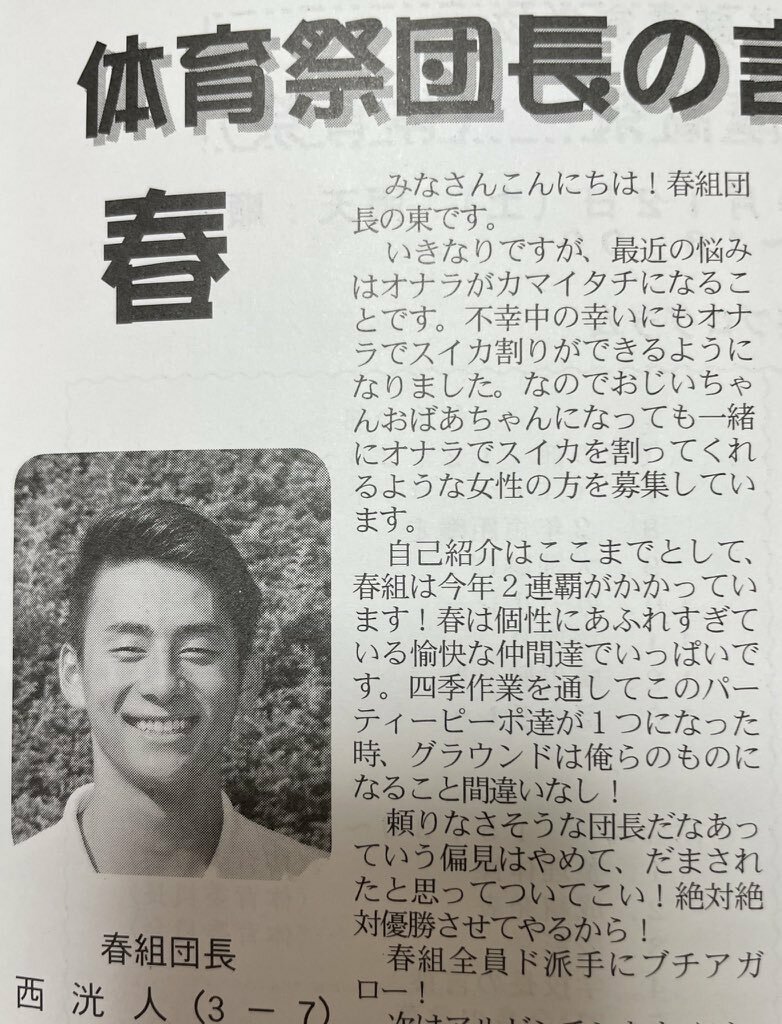 体育祭団長の言
春
みなさんこんにちは！春組団
長の東です。
いきなりですが、最近の悩み
はオナラがカマイタチになるこ
とです。不幸中の幸いにもオナ
ラでスイカ割りができるように
なりました。なのでおじいちゃ
んおばあちゃんになっても一緒
にオナラでスイカを割ってくれ
るような女性の方を募集してい
ます。
自己紹介はここまでとして、
春組は今年２連覇がかかってい
ます！春は個性にあふれすぎて
いる愉快な仲間達でいっぱいで
す。四季作業を通してこのパー
ティーピーポ達が１つになった
時、グラウンドは俺らのものに
なること間違いなし！
頼りなさそうな団長だなあっ
ていう偏見はやめて、だまされ
たと思ってついてこい！絶対絶
対優勝させてやるから！
春組全員ド派手にブチアガ
ロー！
春組団長
西洸人(3－7)